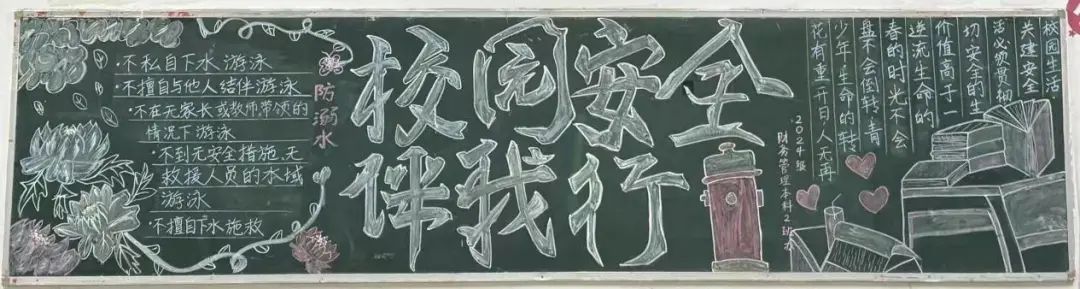 ·不私自下水游泳
·不擅自与他人结伴游泳
·不在无家长或教师带领的
情况下游泳
·不到无安全措施、无
救援人员的水域
游泳
·不擅自下水施救
防溺水
校园安全
伴我行
2024级
财务管理本科2班
花有重开日人无再
少年生命的转
盘不会倒转,青
春的时光不会
逆流生命的
价值高于一
切安全的生
活必须贯彻
共建安全
校园生活